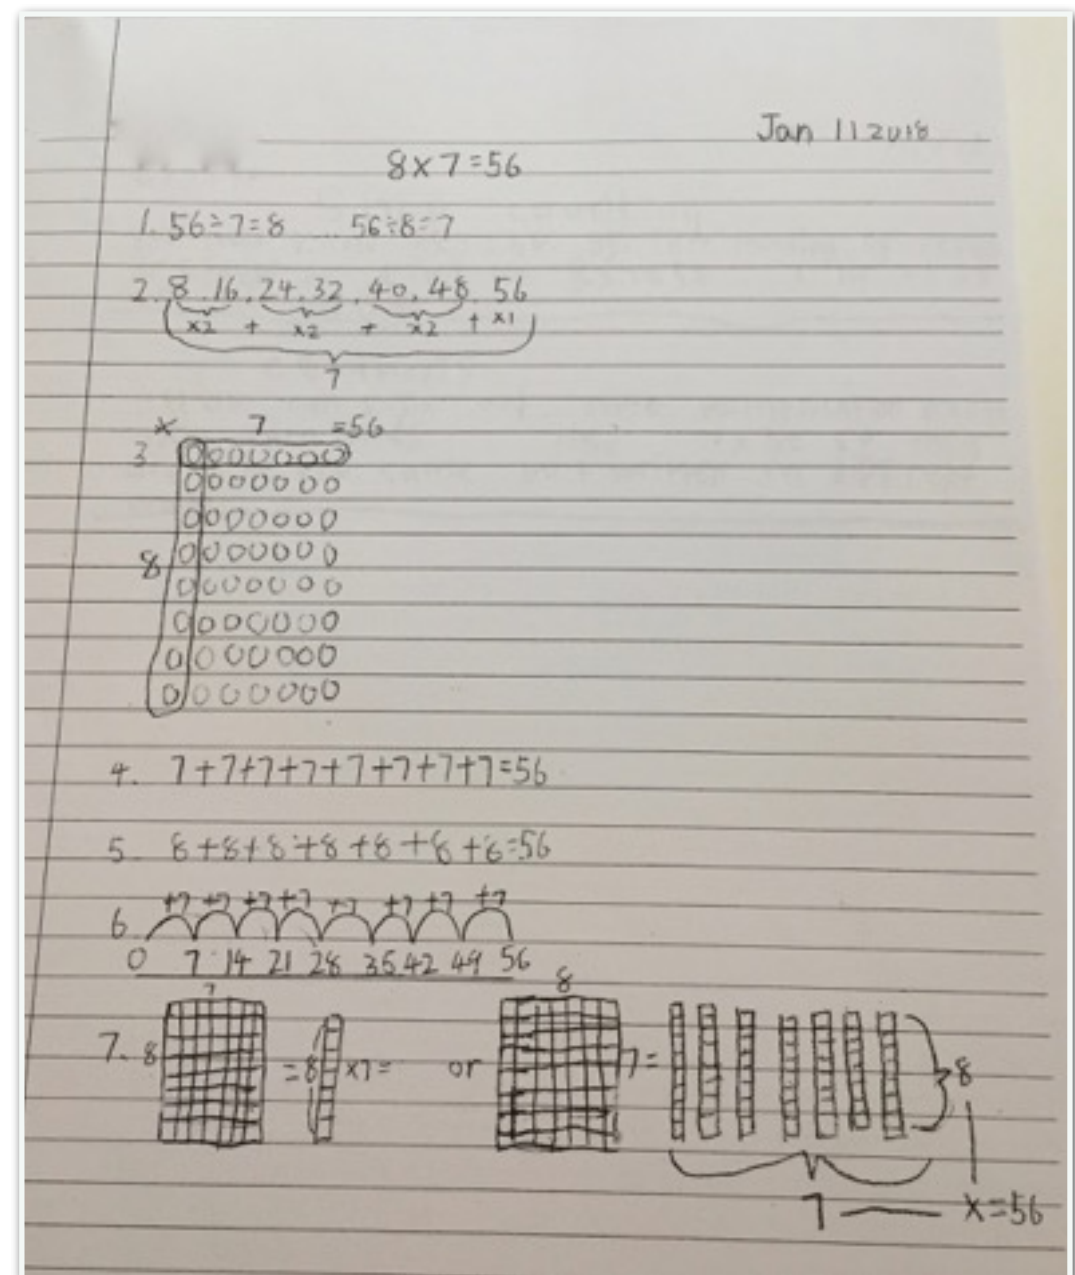 Jan 11 2018
8x7=56
1. 56÷7=8 ... 56÷8=7
2. 8, 16, 24, 32, 40, 48, 56
x2 + x2 + x2 + x1
7
x 7 =56
3
8
4. 7+7+7+7+7+7+7+7=56
5. 8+8+8+8+8+8+8=56
+7 +7 +7 +7 +7 +7 +7 +7
6.
0 7 14 21 28 35 42 49 56
7 8
7. 8 =8 x7= or 7= 8
7 x=56